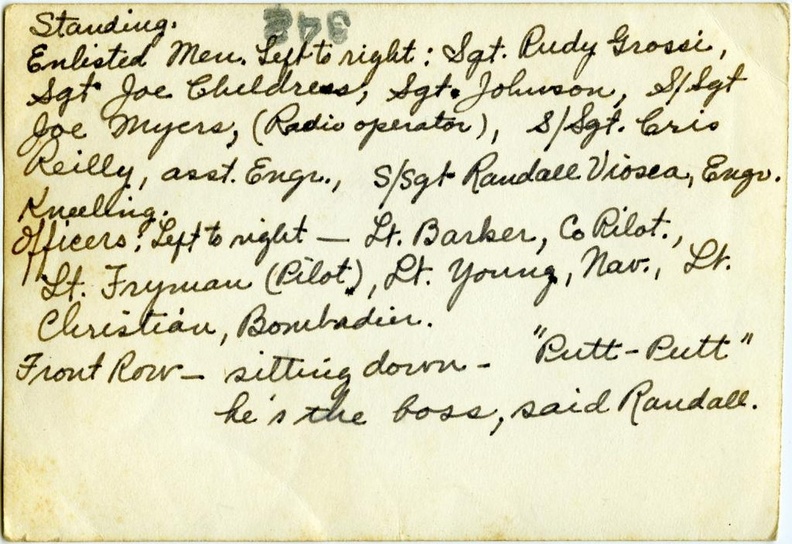 Standing.
348
Enlisted Men. Left to right: Sgt. Rudy Grossi,
Sgt. Joe Childress, Sgt. Johnson, S/Sgt
Joe Myers, (Radio operator), S/Sgt. Cris
Reilly, asst. Engr., S/Sgt Randall Viosca, Engr.
Kneeling.
Officers: Left to right — Lt. Barker, Co Pilot.,
Lt. Fryman (Pilot), Lt. Young, Nav., Lt.
Christian, Bombadier.
Front Row — sitting down - "Putt-Putt"
he's the boss, said Randall.